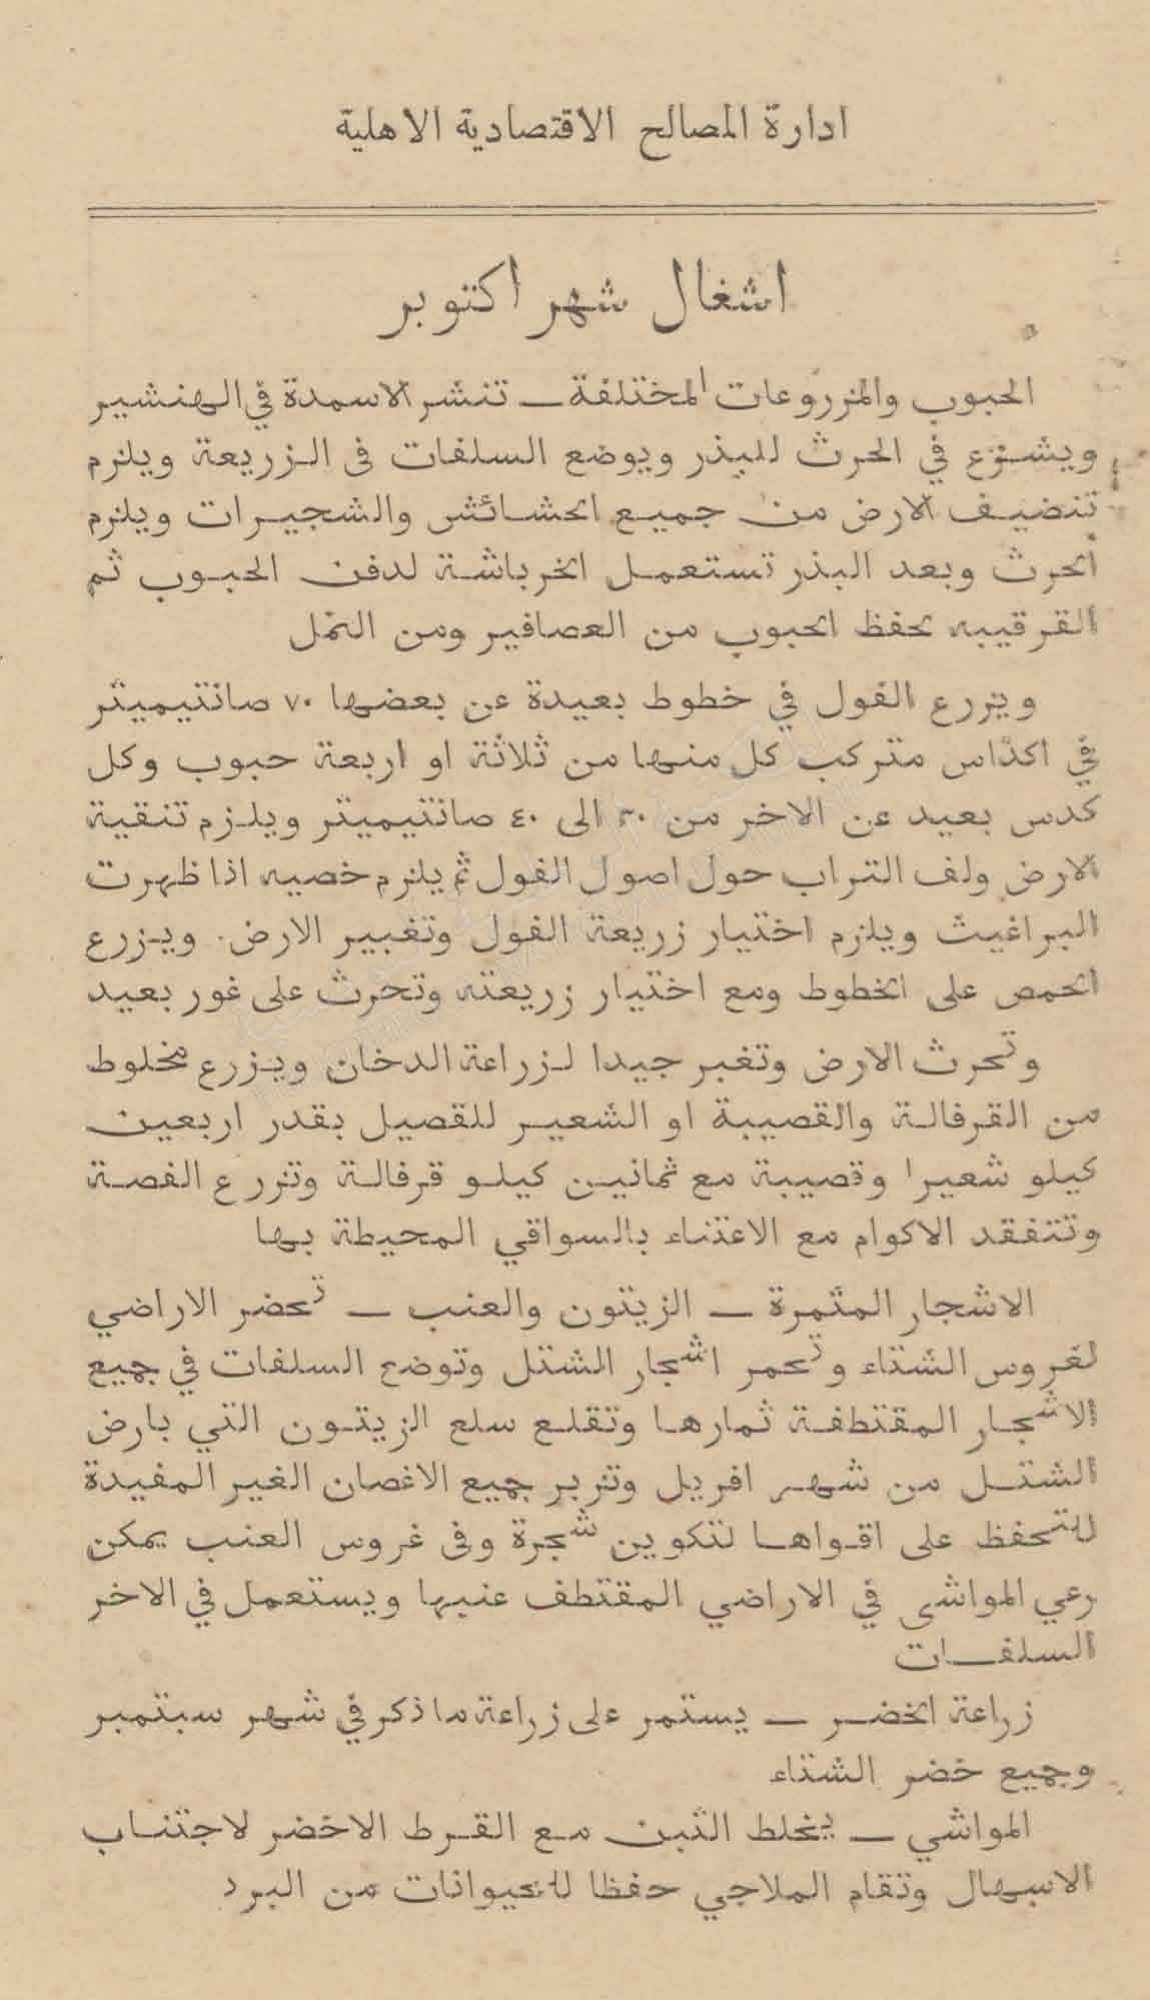 ادارة المصالح الاقتصادية الاهلية
اشغال شهر اكتوبر
الحبوب والمزروعات المختلفة ــ تنشر الاسمدة في الهنشير
ويشرع في الحرث للبذر ويوضع السلفات فى الزريعة ويلزم
تنضيف الارض من جميع الحشائش والشجيرات ويلزم
الحرث وبعد البذر تستعمل الخرباشة لدفن الحبوب ثم
القرقيبه بحفظ الحبوب من العصافير ومن النمل
ويزرع الفول في خطوط بعيدة عن بعضها ٧٠ صانتيميتر
في اكداس متركب كل منها من ثلاثة او اربعة حبوب وكل
كدس بعيد عن الاخر من ٣٠ الى ٤٠ صانتيميتر ويلزم تنقية
الارض ولف التراب حول اصول الفول ثم يلزم خصيه اذا ظهرت
البراغيث ويلزم اختيار زريعة الفول وتغبير الارض. ويزرع
الحمص على الخطوط ومع اختيار زريعته وتحرث على غور بعيد
وتحرث الارض وتغبر جيدا لزراعة الدخان ويزرع مخلوط
من القرفالة والقصيبة او الشعير للقصيل بقدر اربعين
كيلو شعيرا وقصيبة مع ثمانين كيلو قرفالة وتزرع الفصة
وتتفقد الاكوام مع الاعتناء بالسواقي المحيطة بها
الاشجار المثمرة ــ الزيتون والعنب ــ تحضر الاراضي
لغروس الشتاء وتحمر اشجار الشتل وتوضع السلفات في جميع
الاشجار المقتطفة ثمارها وتقلع سلع الزيتون التي بارض
الشتل من شهر افريل وتزبر جميع الاغصان الغير المفيدة
للتحفظ على اقواها لتكوين شجرة وفى غروس العنب يمكن
رعي المواشى في الاراضي المقتطف عنبها ويستعمل في الاخر
السلفات
زراعة الخضر ــ يستمر على زراعة ما ذكر في شهر سبتمبر
وجميع خضر الشتاء
المواشي ــ يخلط التبن مع القرط الاخضر لاجتناب
الاسهال وتقام الملاجي حفظا للحيوانات من البرد